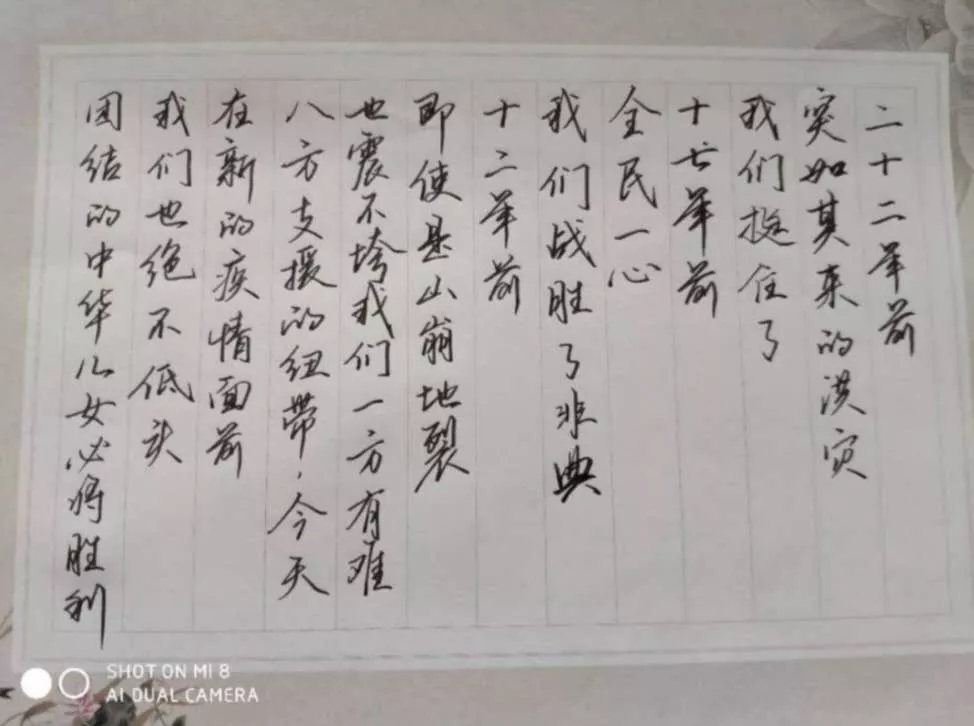 二十二年前
突如其来的洪灾
我们挺住了
十七年前
全民一心
我们战胜了非典
十二年前
即使是山崩地裂
也震不垮我们一方有难
八方支援的纽带.今天
在新的疫情面前
我们也绝不低头
团结的中华儿女必将胜利
SHOT ON MI 8
AI DUAL CAMERA